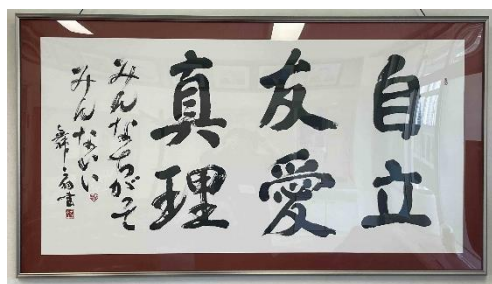 自立
友愛
真理
みんなちがって
みんないい